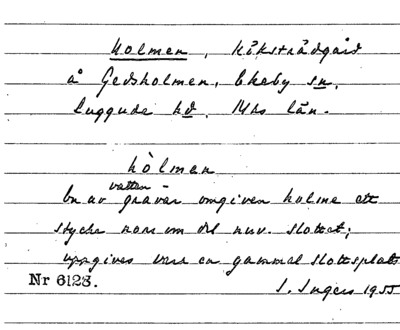 Holmen, Köksträdgård
å Gedsholmen, Ekeby sn,
Luggude hd, Mhs län.
hòlmen
vatten-
en av gravar omgiven holme ett
stycke norr om det nuv. slottet;
uppgives vara en gammal slottsplats
Nr 6128.
I. Ingers 1955